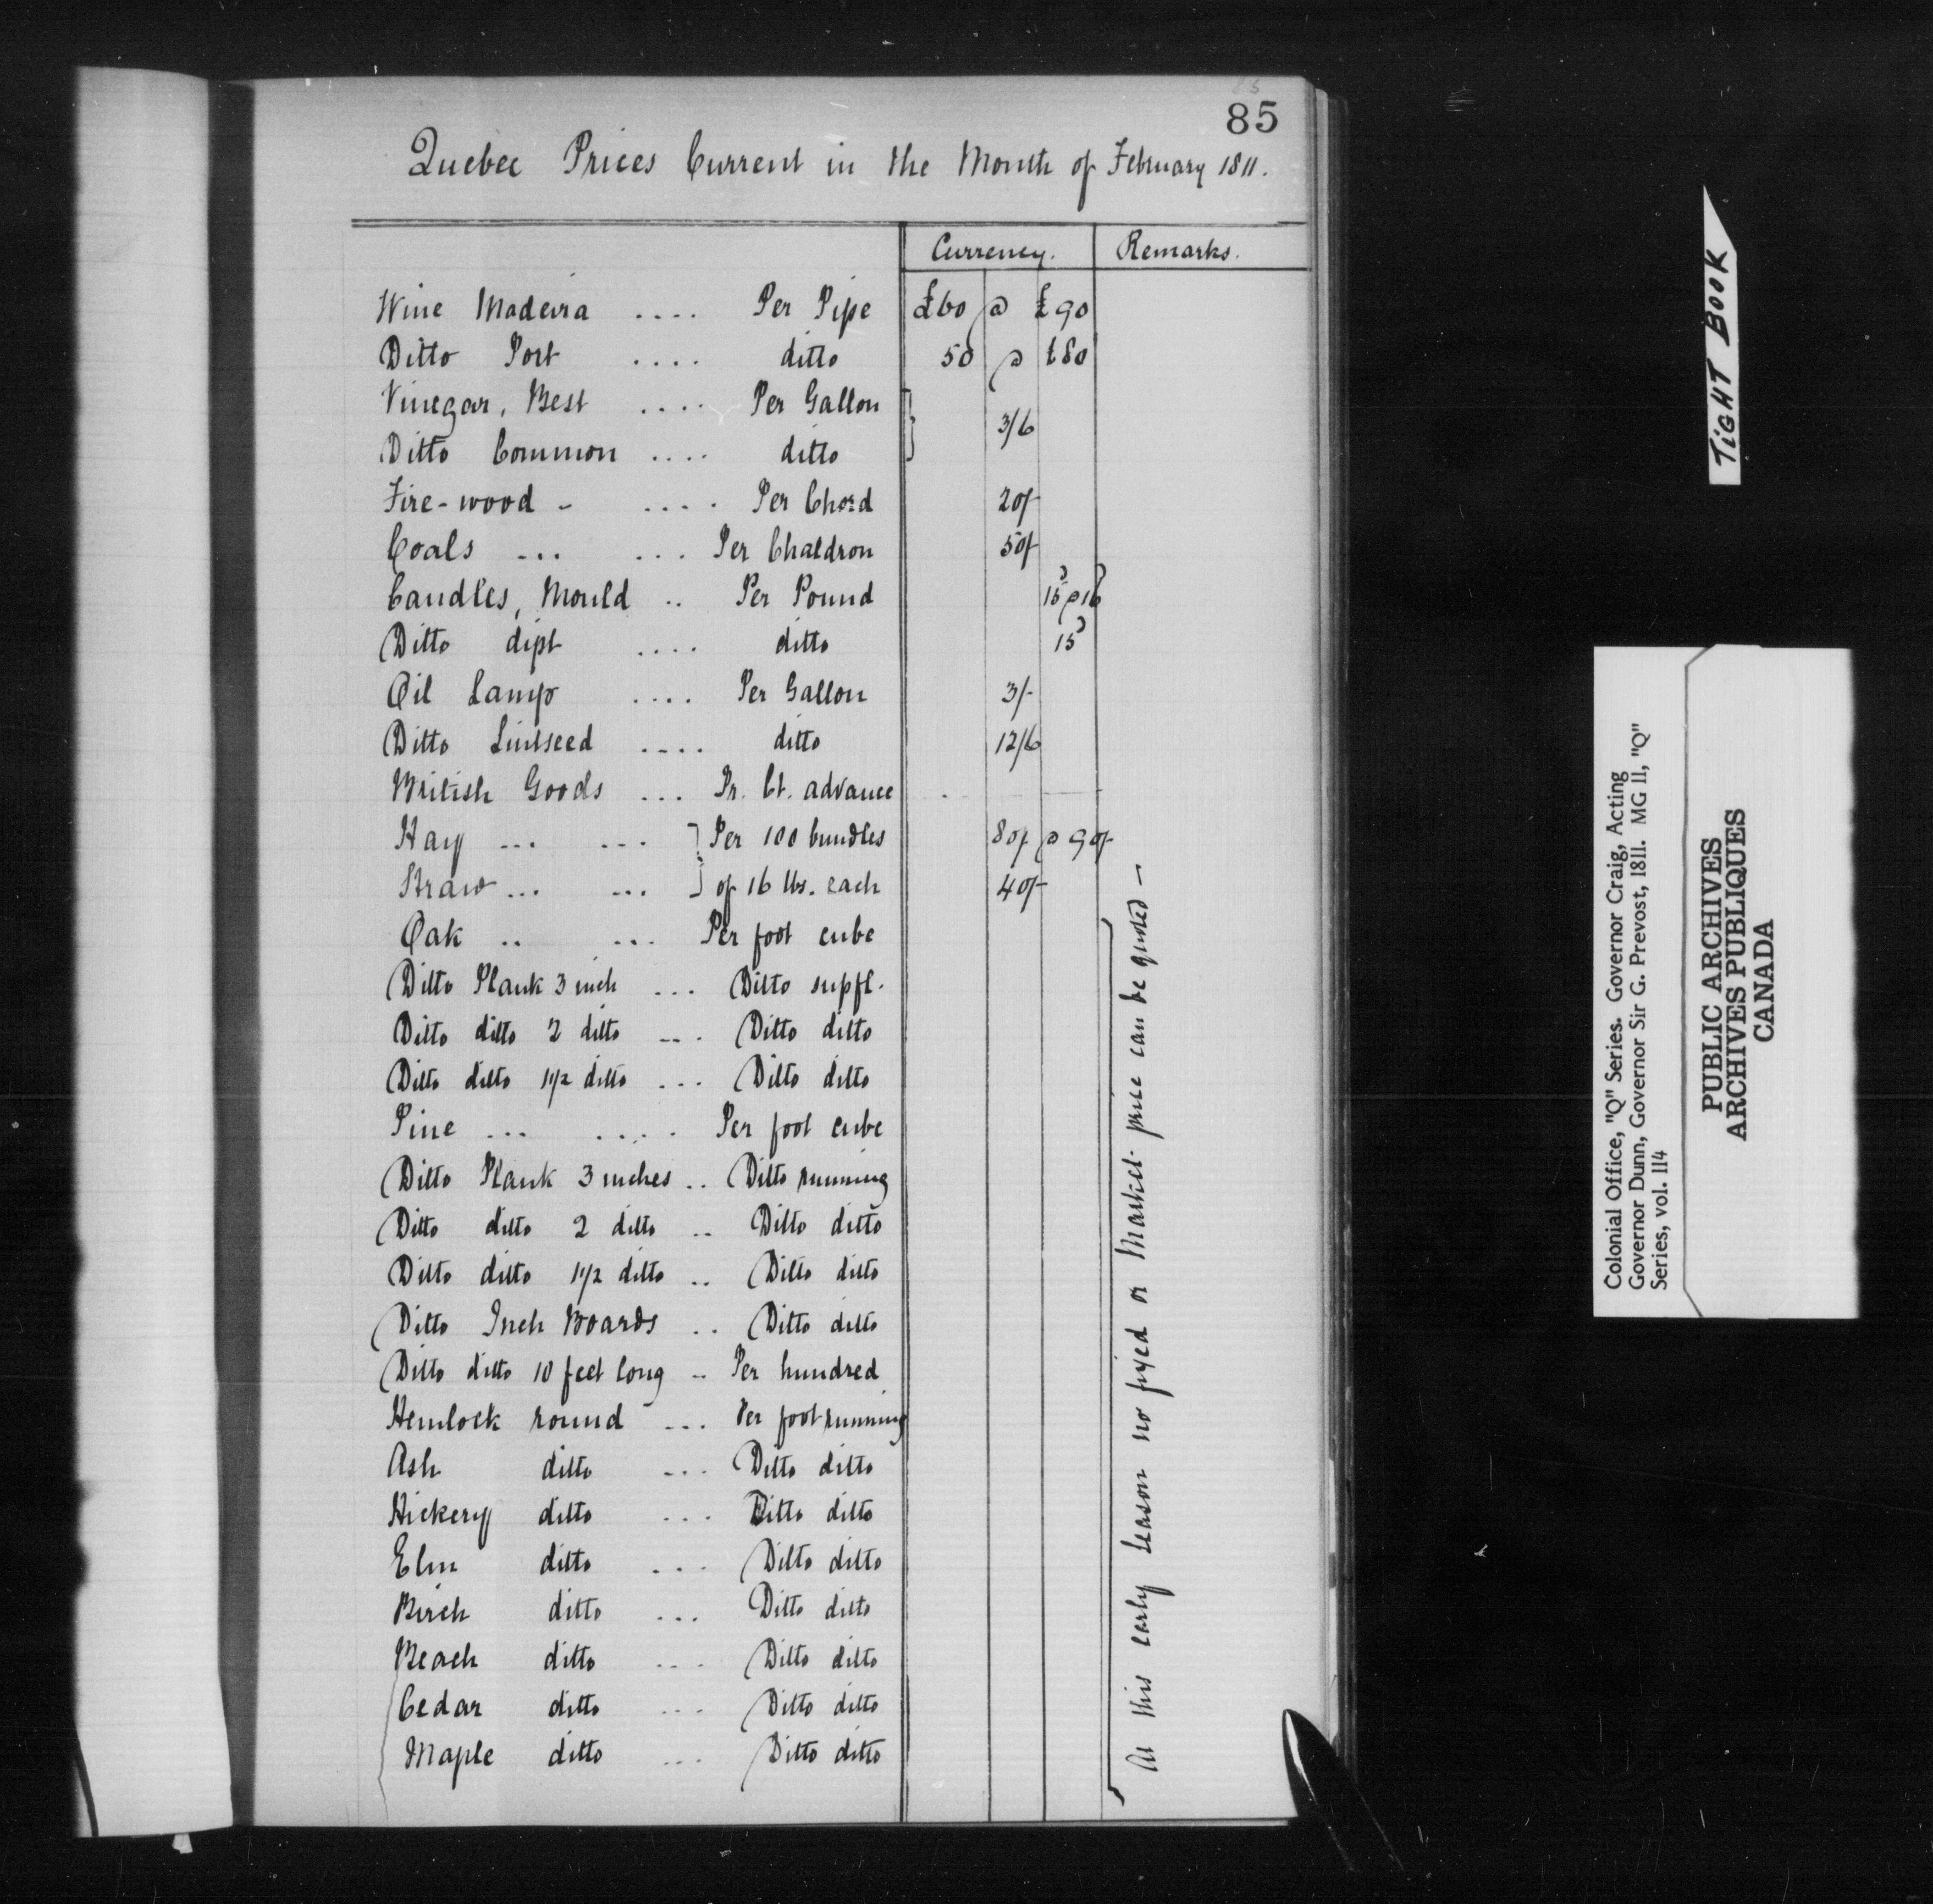 85
Quebec Prices Current in the Month of February 1811.
Currency. Remarks.
Wine Madeira .... Per Pipe £60 @ £90
Ditto Port .... ditto 50 @ £80
Vinegar, Best .... Per Gallon } 3/6
Ditto Common .... ditto
Fire-wood - .... Per Chord 20/-
Coals ... ... Per Chaldron 50/-
Candles, Mould .. Per Pound 15d @ 16d
Ditto dipt .... ditto 15d
Oil Lamp .... Per Gallon 3/-
Ditto Lintseed .... ditto 12/6
British Goods ... Pr. Ct. advance
Hay ... ... } Per 100 bundles 80/- @ 90/-
Straw ... ... } of 16 lbs. each 40/-
Oak .. ... Per foot cube
Ditto Plank 3 inch ... Ditto supfl.
Ditto ditto 2 ditto ... Ditto ditto
Ditto ditto 1 1/2 ditto ... Ditto ditto
Pine ... .... Per foot cube
Ditto Plank 3 inches .. Ditto running
Ditto ditto 2 ditto .. Ditto ditto
Ditto ditto 1 1/2 ditto .. Ditto ditto
Ditto Inch Boards .. Ditto ditto
Ditto ditto 10 feet long .. Per hundred
Hemlock round ... Per foot running
Ash ditto ... Ditto ditto
Hickery ditto ... Ditto ditto
Elm ditto ... Ditto ditto
Birch ditto ... Ditto ditto
Beach ditto ... Ditto ditto
Cedar ditto ... Ditto ditto
Maple ditto ... Ditto ditto
At this early Season no fixed or Market price can be quoted —
TIGHT BOOK
Colonial Office, "Q" Series. Governor Craig, Acting
Governor Dunn, Governor Sir G. Prevost, 1811. MG 11, "Q"
Series, vol. 114
PUBLIC ARCHIVES
ARCHIVES PUBLIQUES
CANADA